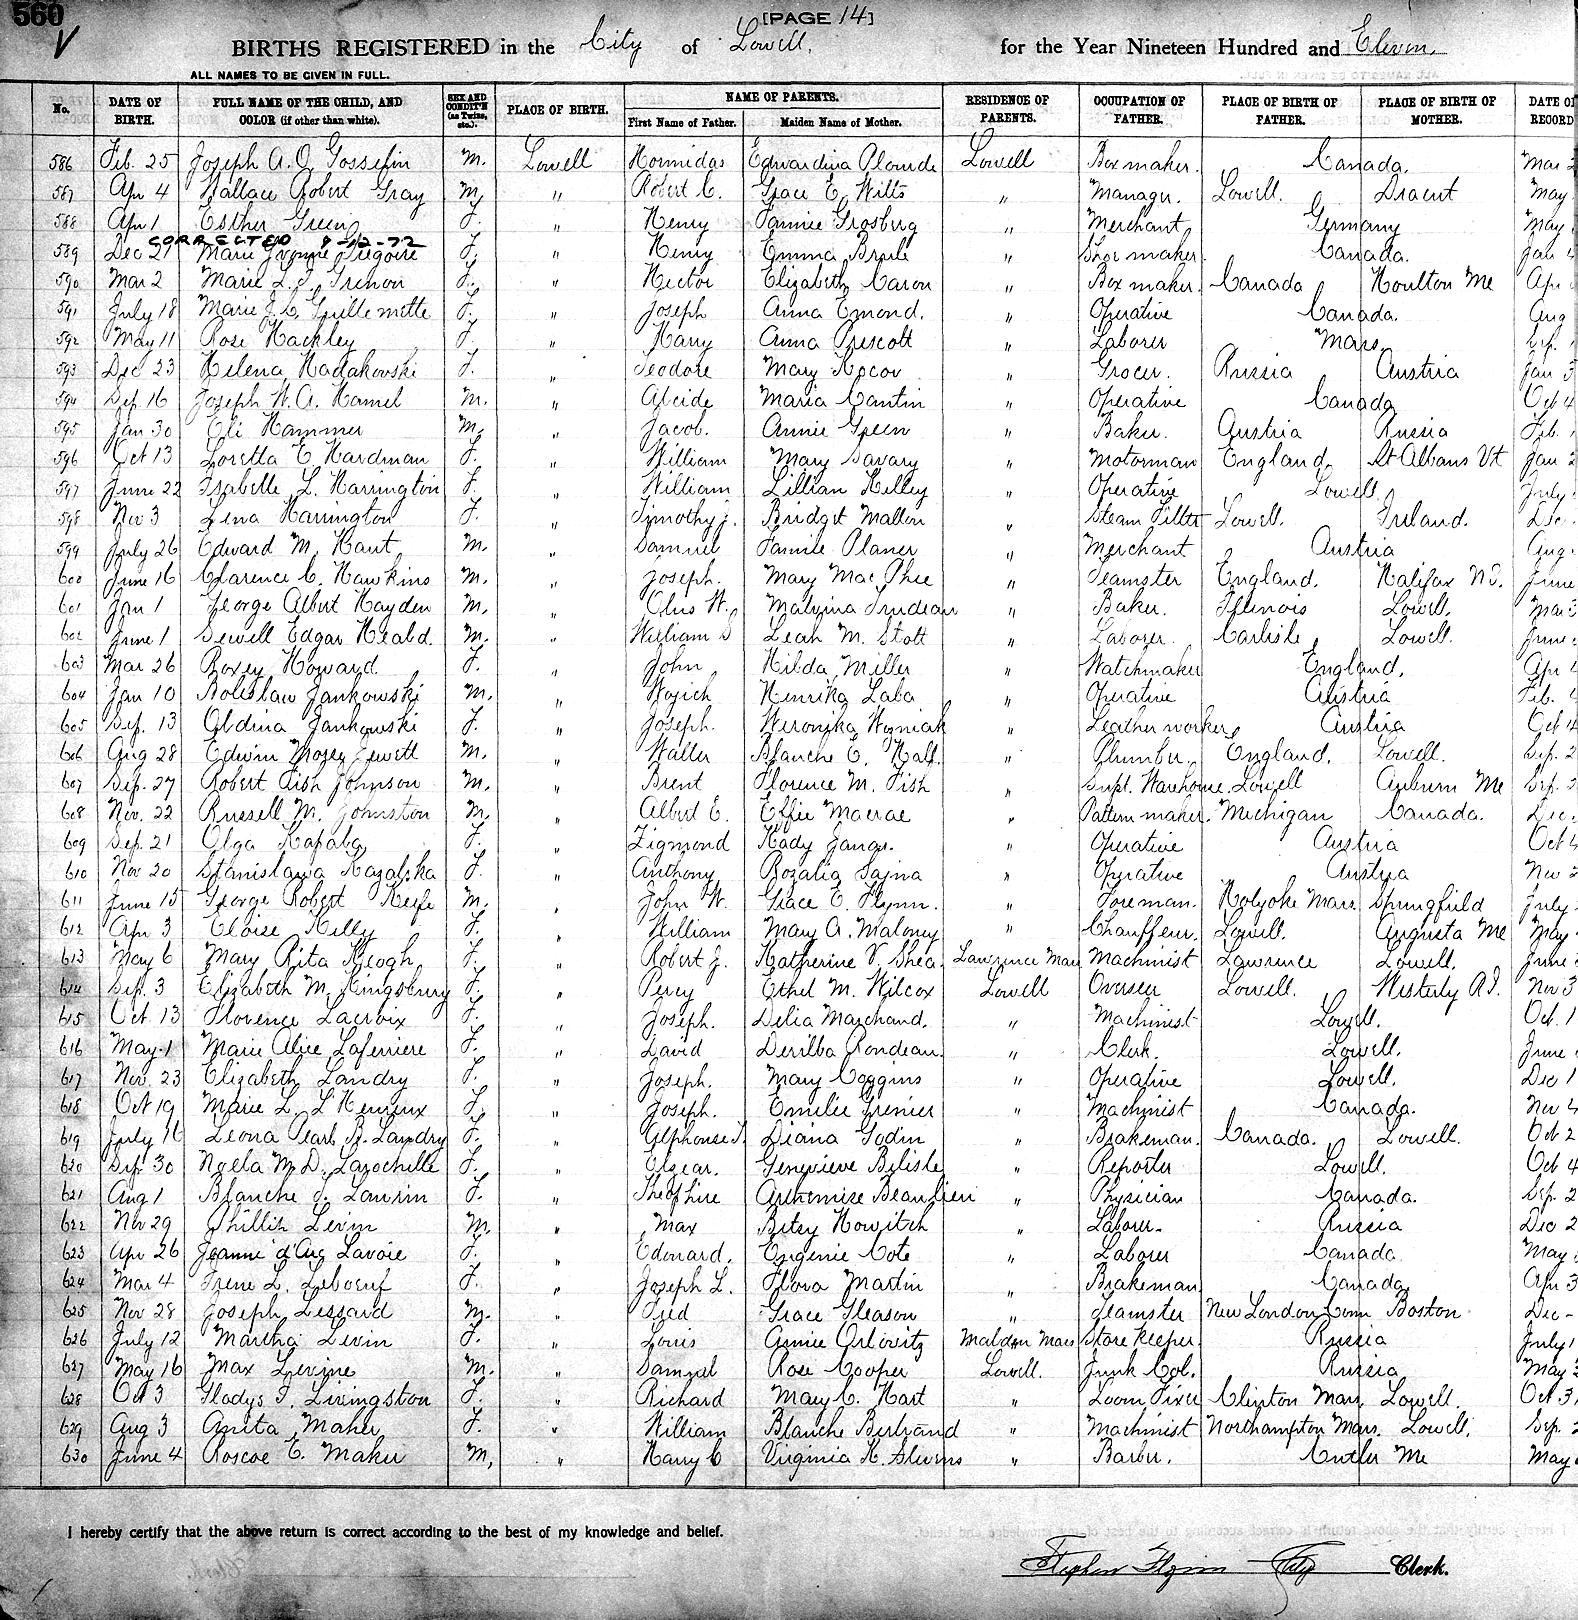 560
[PAGE 14]
BIRTHS REGISTERED in the City of Lowell, for the Year Nineteen Hundred and Eleven.
ALL NAMES TO BE GIVEN IN FULL.
No. DATE OF BIRTH. FULL NAME OF THE CHILD, AND COLOR (if other than white). SEX AND CONDIT'N (as Twins, etc.). PLACE OF BIRTH. NAME OF PARENTS. First Name of Father. Maiden Name of Mother. RESIDENCE OF PARENTS. OCCUPATION OF FATHER. PLACE OF BIRTH OF FATHER. PLACE OF BIRTH OF MOTHER. DATE OF RECORD
586 Feb. 25 Joseph A. O. Gosselin M. Lowell Hormidas Edwardina Plourde Lowell Box maker. Canada. Mar 2
587 Apr 4 Wallace Robert Gray M. " Robert C. Grace E. Wilts " Manager. Lowell. Dracut May
588 Apr 1 Esther Green F. " Henry Fannie Grosberg " Merchant Germany May
CORRECTED 9-12-72
589 Dec 27 Marie Yvonne Gregoire F. " Henry Emma Brule " Shoe maker. Canada. Jan 4
590 Mar 2 Marie L. J. Grenon F. " Hector Elizabeth Caron " Box maker. Canada Houlton Me Apr
591 July 18 Marie J. C. Guillemette F. " Joseph Anna Emond. " Operative Canada. Aug
592 May 11 Rose Hackley F. " Harry Anna Prescott " Laborer Mass. Sep.
593 Dec 23 Helena Hadakowski F. " Teodore Mary Kocov " Grocer. Russia Austria Jan 3
594 Sep. 16 Joseph W. A. Hamel M. " Alcide Maria Cantin " Operative Canada Oct 4
595 Jan 30 Eli Hammer M. " Jacob. Annie Green " Baker. Austria Russia Feb.
596 Oct 13 Loretta E Hardman F. " William Mary Savary " Motorman England. St Albans Vt Jan 2
597 June 22 Isabelle L. Harrington F. " William Lillian Kelley " Operative Lowell. July
598 Nov 3 Lena Harrington F. " Timothy J. Bridget Mallon " Steam Fitter Lowell. Ireland. Dec.
599 July 26 Edward M. Haut M. " Samuel Famile Planer " Merchant Austria Aug.
600 June 16 Clarence C. Hawkins M. " Joseph. Mary MacPhee " Teamster England. Halifax N.S. June
601 Jan 1 George Albert Hayden M. " Olus W. Malvina Trudeau " Baker. Illinois Lowell. Mar 3
602 June 1 Sewell Edgar Heald. M. " William S Leah M. Stott " Laborer. Carlisle Lowell. June
603 Mar 26 Roxey Howard F. " John Hilda Miller " Watchmaker England. Apr 4
604 Jan 10 Boleslaw Jankowski M. " Wojich Henrika Laba " Operative Austria Feb. 4
605 Sep. 13 Aldina Jankowski F. " Joseph. Weronzka Wozniak " Leather worker Austria Oct 4
606 Aug 28 Edwin Mozey Jewett M. " Walter Blanche E. Hall. " Plumber. England. Lowell. Sep. 2
607 Sep. 27 Robert Fish Johnson M. " Brent Florence M. Fish " Supt. Warehouse. Lowell Auburn Me Sep. 2
608 Nov. 22 Russell M. Johnston M. " Albert E. Effie Macrae " Pattern maker. Michigan Canada. Dec.
609 Sep. 21 Olga Kapala F. " Zigmond Kady Jangr. " Operative Austria Oct 4
610 Nov 20 Stanislawa Kazalska F. " Anthony Rozalia Sajna " Operative Austria Nov 2
611 June 15 George Robert Keefe M. " John W. Grace E. Flynn. " Foreman. Holyoke Mass. Springfield July
612 Apr 3 Eloise Kelly F. " William Mary A. Maloney " Chauffeur. Lowell. Augusta Me May
613 May 6 Mary Rita Keogh F. " Robert J. Katherine V. Shea. Lawrence Mass Machinist Lawrence Lowell. June
614 Sep. 3 Elizabeth M. Kingsbury F. " Percy Ethel M. Wilcox Lowell Overseer Lowell. Westerly R.I. Nov 3
615 Oct 13 Florence Lacroix F. " Joseph. Delia Marchand. " Machinist Lowell. Oct. 1
616 May 1 Marie Alice Laferriere F. " David Derilba Rondeau. " Clerk. Lowell. June
617 Nov. 23 Elizabeth Landry F. " Joseph. Mary Coggins " Operative Lowell. Dec 1
618 Oct 19 Marie L. L'Heureux F. " Joseph. Emilie Grenier " Machinist Canada. Nov 4
619 July 16 Leona Pearl B. Landry F. " Alphonse T. Diana Godin " Brakeman. Canada. Lowell. Oct 2
620 Sep. 30 Noella M. D. Larochelle F. " Elzear. Genevieve Belisle " Reporter Lowell. Oct 4
621 Aug 1 Blanche J. Laurin F. " Theophire Arthemise Beaulieu " Physician Canada. Sep. 2
622 Nov 29 Phillip Levin M. " Max Betsy Howitch " Laborer. Russia Dec 2
623 Apr 26 Jeanne d'Arc Lavoie F. " Edouard. Eugenie Cote " Laborer Canada May
624 Mar 4 Irene L. Leboeuf F. " Joseph L. Flora Martin " Brakeman Canada Apr 3
625 Nov 28 Joseph Lessard M. " Fred Grace Gleason " Teamster New London Conn Boston Dec
626 July 12 Martha Levin F. " Louis Annie Orlovitz Malden Mass Store keeper. Russia July 1
627 May 16 Max Levine M. " Samuel Rose Cooper Lowell. Junk Col. Russia May 3
628 Oct 3 Gladys I. Livingston F. " Richard Mary C. Hart " Loom Fixer Clinton Mass Lowell. Oct 3
629 Aug 3 Anita Maher F. " William Blanche Bertrand " Machinist Northampton Mass. Lowell. Sep. 2
630 June 4 Roscoe E. Maker M. " Harry C Virginia H. Stevens " Barber. Cutler Me May
I hereby certify that the above return is correct according to the best of my knowledge and belief.
Stephen Flynn City Clerk.